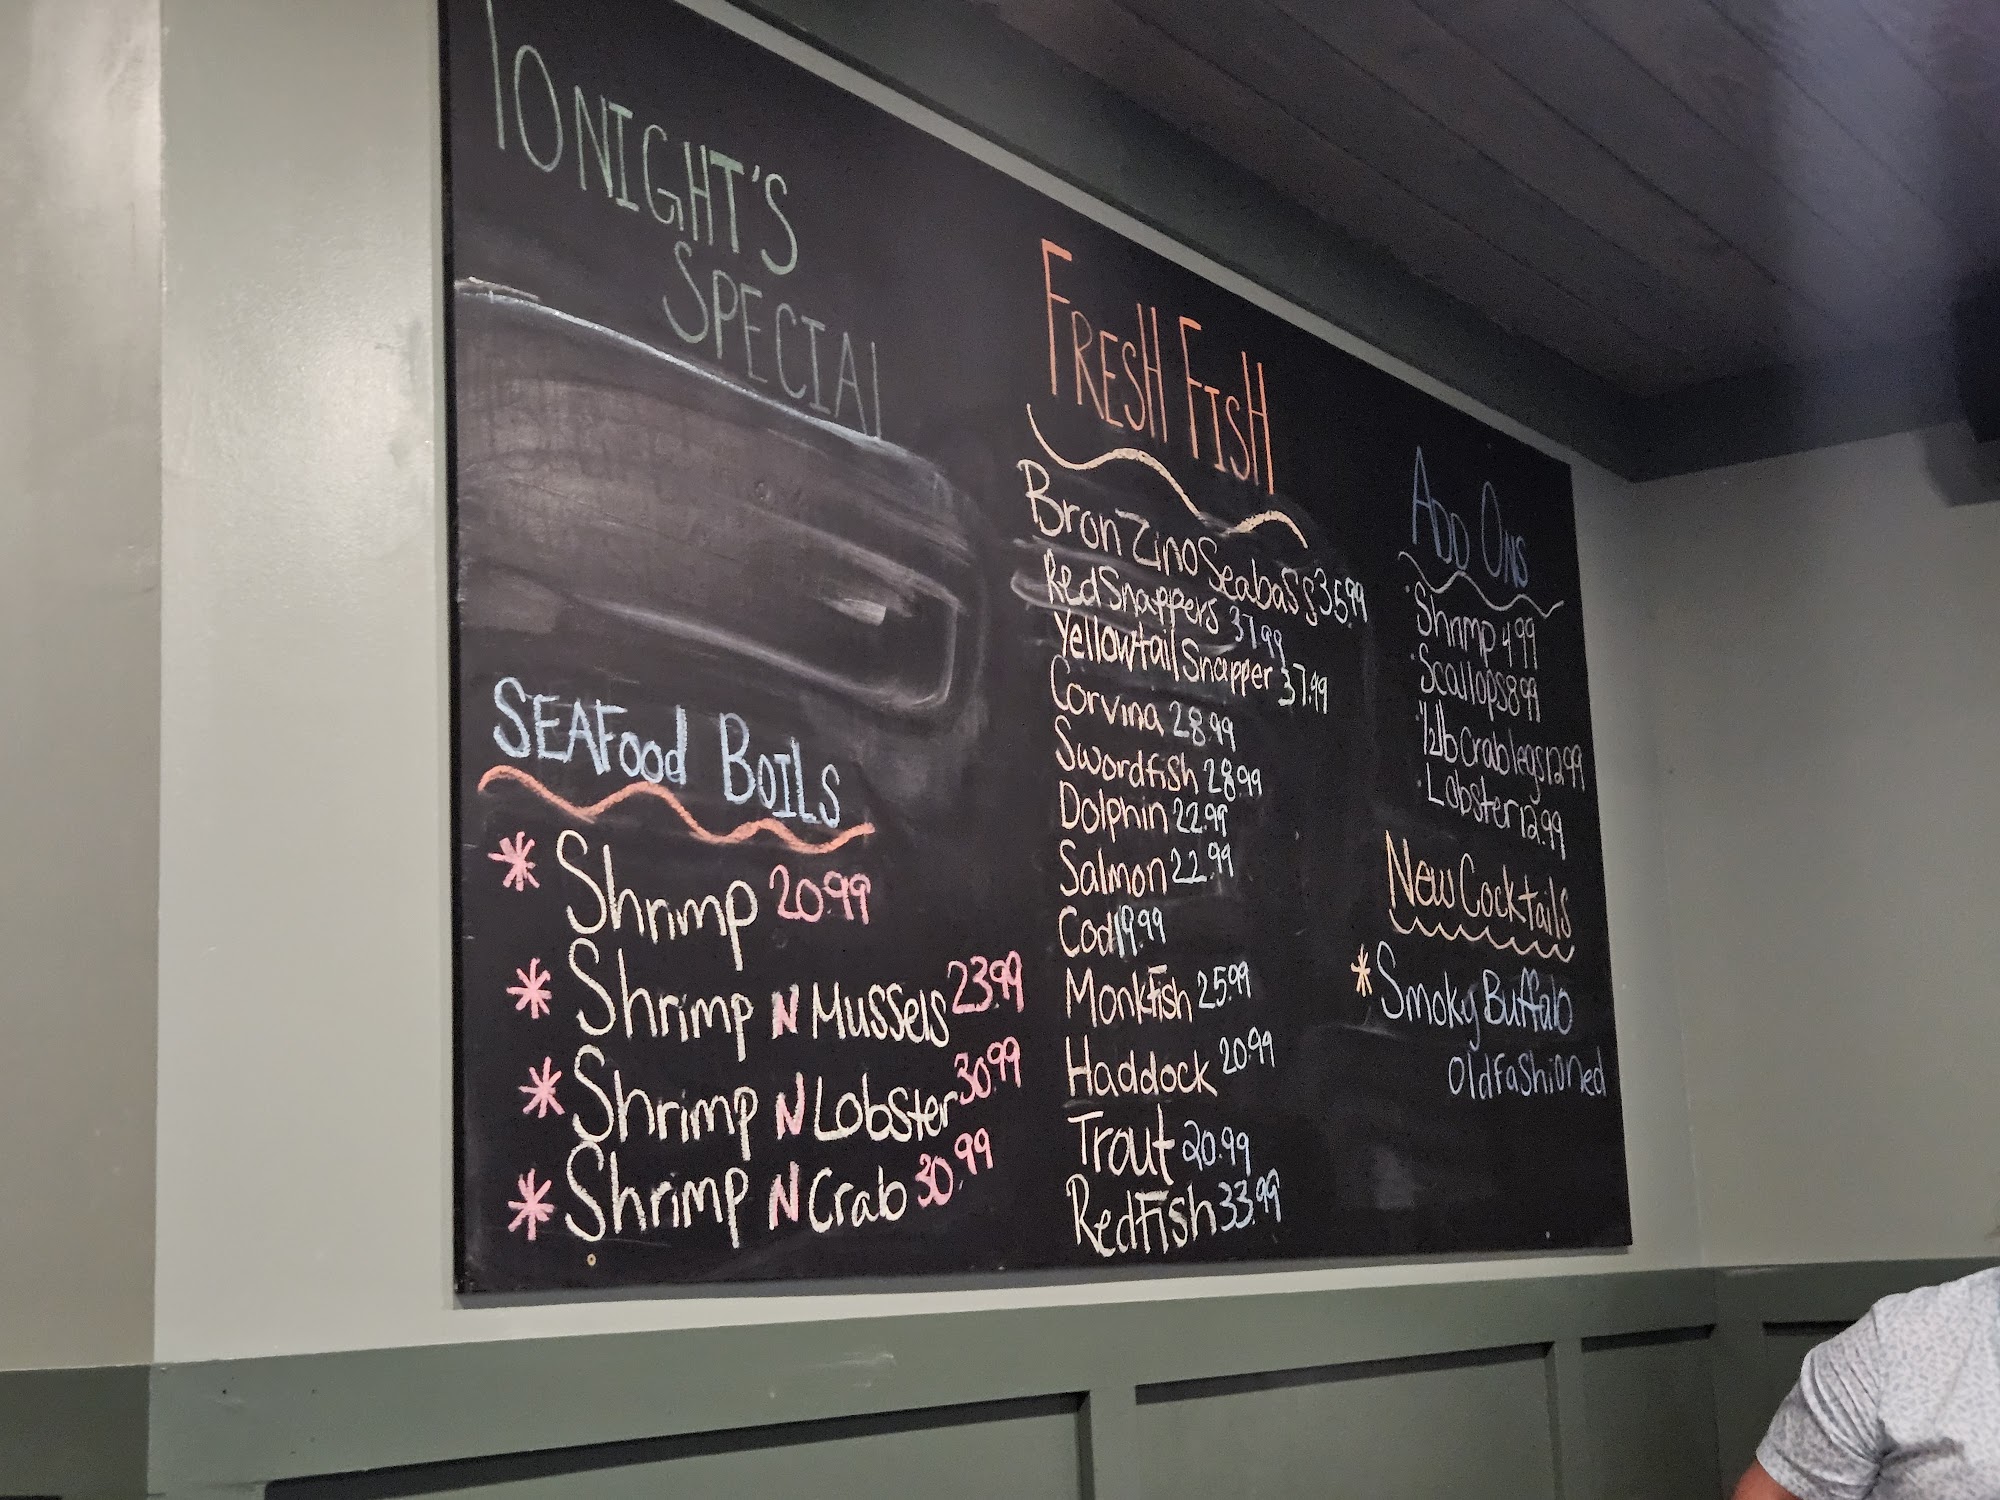 TONIGHT'S
SPECIAL
SEAFood BOILS
* Shrimp 20.99
* Shrimp N Mussels 23.99
* Shrimp N Lobster 30.99
* Shrimp N Crab 30.99
FRESH FISH
BronZino Seabass 35.99
Red Snappers 37.99
Yellowtail Snapper 37.99
Corvina 28.99
Swordfish 28.99
Dolphin 22.99
Salmon 22.99
Cod 19.99
Monkfish 25.99
Haddock 20.99
Trout 20.99
RedFish 33.99
ADD ONS
·Shrimp 4.99
·Scallops 8.99
·1/2lb Crab legs 12.99
·Lobster 12.99
New Cocktails
* Smoky Buffalo
Old Fashioned